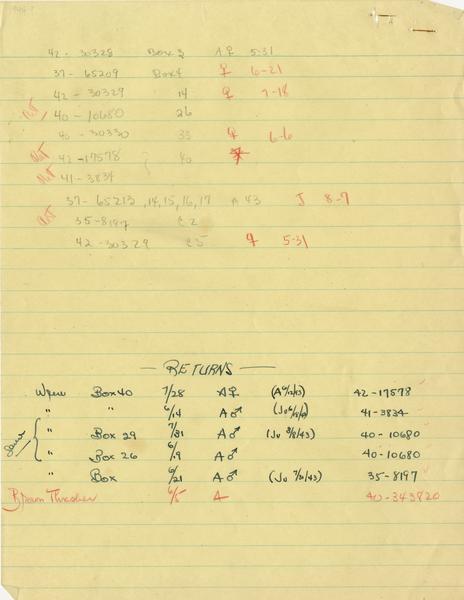 42-30328 Box 3 A♀ 5-31
37-65209 Box 4 ♀ 6-21
42-30329 14 ♀ 7-18
40-10680 26
40-30330 33 ♀ 6-6
42-17578 } 40
41-3834
37-65213, 14, 15, 16, 17 A 43 J 8-7
35-8197 C2
42-30329 C5 ♀ 5-31
— RETURNS —
Wren Box 40 7/28 A♀ 42-17578
" " 6/14 A♂ 41-3834
" Box 29 7/31 A♂ 40-10680
same { " Box 26 6/19 A♂ 40-10680
" Box 6/21 A♂ (Ju 7/21/43) 35-8197
Brown Thrasher 6/5 A 40-343820